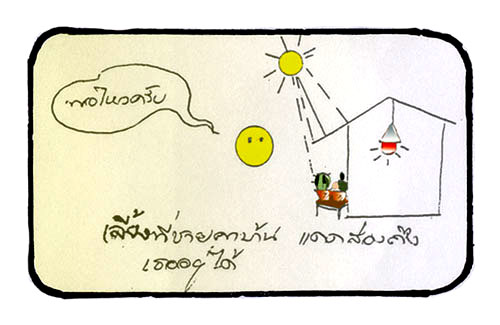 พอไหวครับ
เลี้ยงที่ชายคาบ้าน แดดส่องถึง
เธออยู่ได้